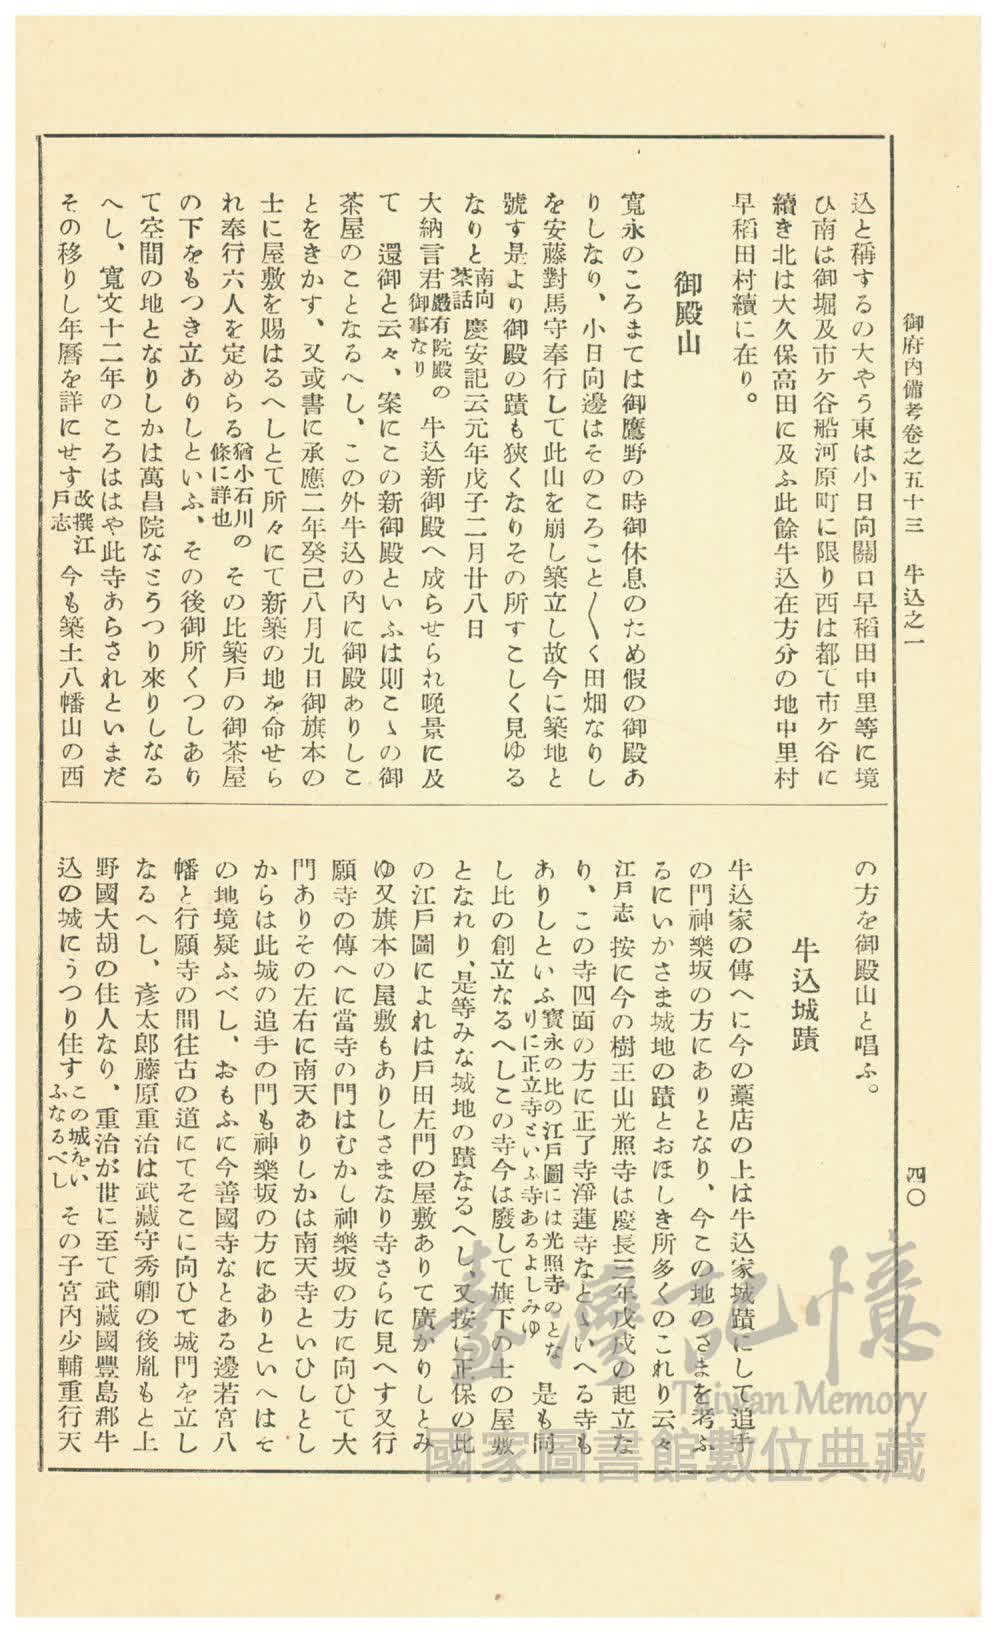 御府內備考卷之五十三　牛込之一
四〇
込と稱するの大やう東は小日向關口早稻田中里等に境
ひ南は御堀及市ケ谷船河原町に限り西は都て市ケ谷に
續き北は大久保高田に及ふ此餘牛込在方分の地中里村
早稻田村續に在り。
御殿山
寬永のころまては御鷹野の時御休息のため假の御殿あ
りしなり、小日向邊はそのころこと〱く田畑なりし
を安藤對馬守奉行して此山を崩し築立し故今に築地と
號す是より御殿の蹟も狹くなりその所すこしく見ゆる
なりと南向茶話慶安記云元年戊子二月廿八日
大納言君嚴有院殿の御事なり　牛込新御殿へ成らせられ晚景に及
て　還御と云々、案にこの新御殿といふは則こゝの御
茶屋のことなるへし、この外牛込の內に御殿ありしこ
とをきかす、又或書に承應二年癸己八月九日御旗本の
士に屋敷を賜はるへしとて所々にて新築の地を命せら
れ奉行六人を定めらる猶小石川の條に詳也　その比築戶の御茶屋
の下をもつき立ありしといふ、その後御所くつしあり
て空間の地となりしかは萬昌院なとうつり來りしなる
へし、寬文十二年のころははや此寺あらされといまだ
その移りし年曆を詳にせす改撰江戶志　今も築土八幡山の西
の方を御殿山と唱ふ。
牛込城蹟
牛込家の傳へに今の藁店の上は牛込家城蹟にして追手
の門神樂坂の方にありとなり、今この地のさまを考ふ
るにいかさま城地の蹟とおほしき所多くのこれり云々
江戶志 按に今の樹王山光照寺は慶長三年戊戌の起立な
り、この寺四面の方に正了寺淨蓮寺なとゝいへる寺も
ありしといふ寶永の比の江戶圖には光照寺のとなりに正立寺といふ寺あるよしみゆ　是も同
し比の創立なるへしこの寺今は廢して旗下の士の屋敷
となれり、是等みな城地の蹟なるへし、又按に正保の比
の江戶圖によれは戶田左門の屋敷ありて廣かりしとみ
ゆ又旗本の屋敷もありしさまなり寺さらに見へす又行
願寺の傳へに當寺の門はむかし神樂坂の方に向ひて大
門ありその左右に南天ありしかは南天寺といひしとし
からは此城の追手の門も神樂坂の方にありといへはそ
の地境疑ふべし、おもふに今善國寺なとある邊若宮八
幡と行願寺の間往古の道にてそこに向ひて城門を立し
なるへし、彥太郎藤原重治は武藏守秀鄉の後胤もと上
野國大胡の住人なり、重治が世に至て武藏國豐島郡牛
込の城にうつり住すこの城をいふなるべし　その子宮內少輔重行天
臺灣記憶
Taiwan Memory
國家圖書館數位典藏